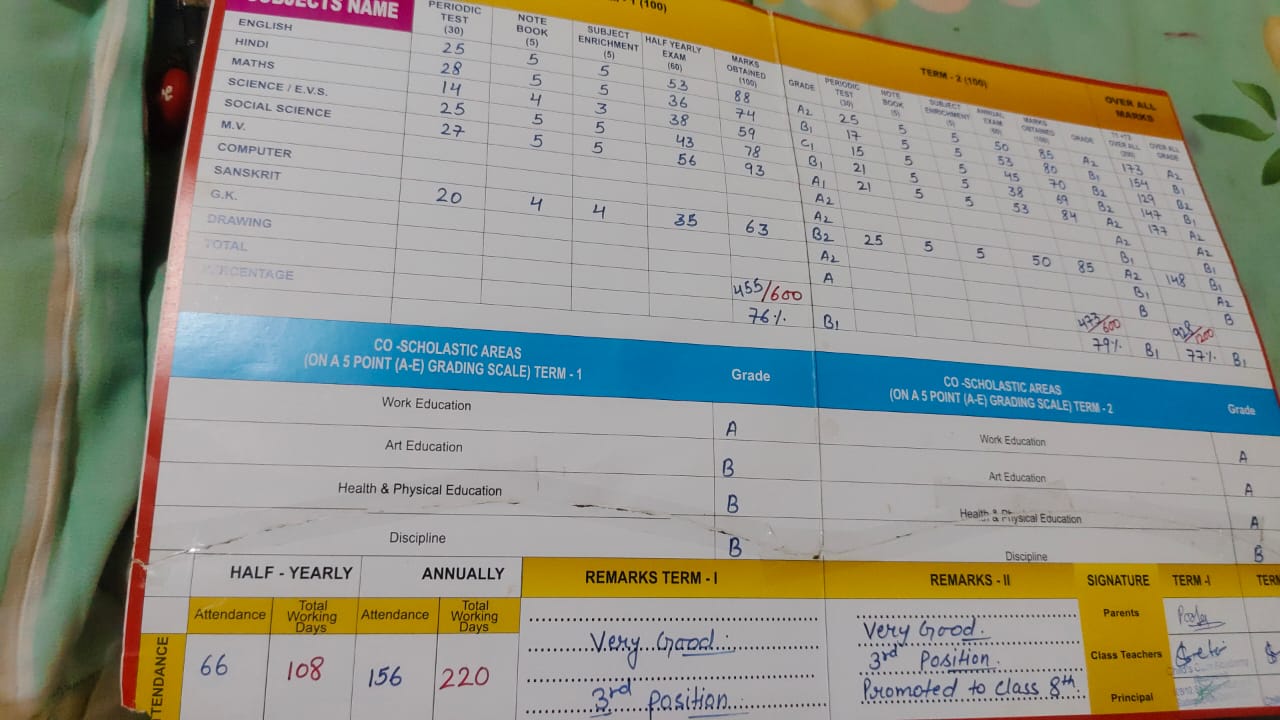 SUBJECTS NAME
- 1 (100)
PERIODIC TEST (30) NOTE BOOK (5) SUBJECT ENRICHMENT (5) HALF YEARLY EXAM (60) MARKS OBTAINED (100) GRADE
TERM - 2 (100)
PERIODIC TEST (30) NOTE BOOK (5) SUBJECT ENRICHMENT (5) ANNUAL EXAM (60) MARKS OBTAINED (100) GRADE
OVER ALL MARKS
OVER ALL (200) OVER ALL GRADE
ENGLISH 25 5 5 53 88 A2 25 5 5 50 85 A2 173 A2
HINDI 28 5 5 36 74 B1 17 5 5 53 80 B1 154 B1
MATHS 14 4 3 38 59 C1 15 5 5 45 70 B2 129 B2
SCIENCE / E.V.S. 25 5 5 43 78 B1 21 5 5 38 69 B2 147 B1
SOCIAL SCIENCE 27 5 5 56 93 A1 21 5 5 53 84 A2 177 A2
M.V. A2 A2 A2
COMPUTER A2 B1 B1
SANSKRIT 20 4 4 35 63 B2 25 5 5 50 85 A2 148 B1
G.K. A2 B1 A2
DRAWING A B B
TOTAL 455/600 473/600 928/1200
PERCENTAGE 76% B1 79% B1 77% B1
CO -SCHOLASTIC AREAS
(ON A 5 POINT (A-E) GRADING SCALE) TERM - 1 Grade
Work Education A
Art Education B
Health & Physical Education B
Discipline B
CO -SCHOLASTIC AREAS
(ON A 5 POINT (A-E) GRADING SCALE) TERM - 2 Grade
Work Education A
Art Education A
Health & Physical Education A
Discipline B
ATTENDANCE
HALF - YEARLY ANNUALLY
Attendance Total Working Days Attendance Total Working Days
66 108 156 220
REMARKS TERM - I
Very Good.
3rd position
REMARKS - II
Very Good.
3rd Position.
Promoted to class 8th.
SIGNATURE TERM -I TERM
Parents
Class Teachers
Principal